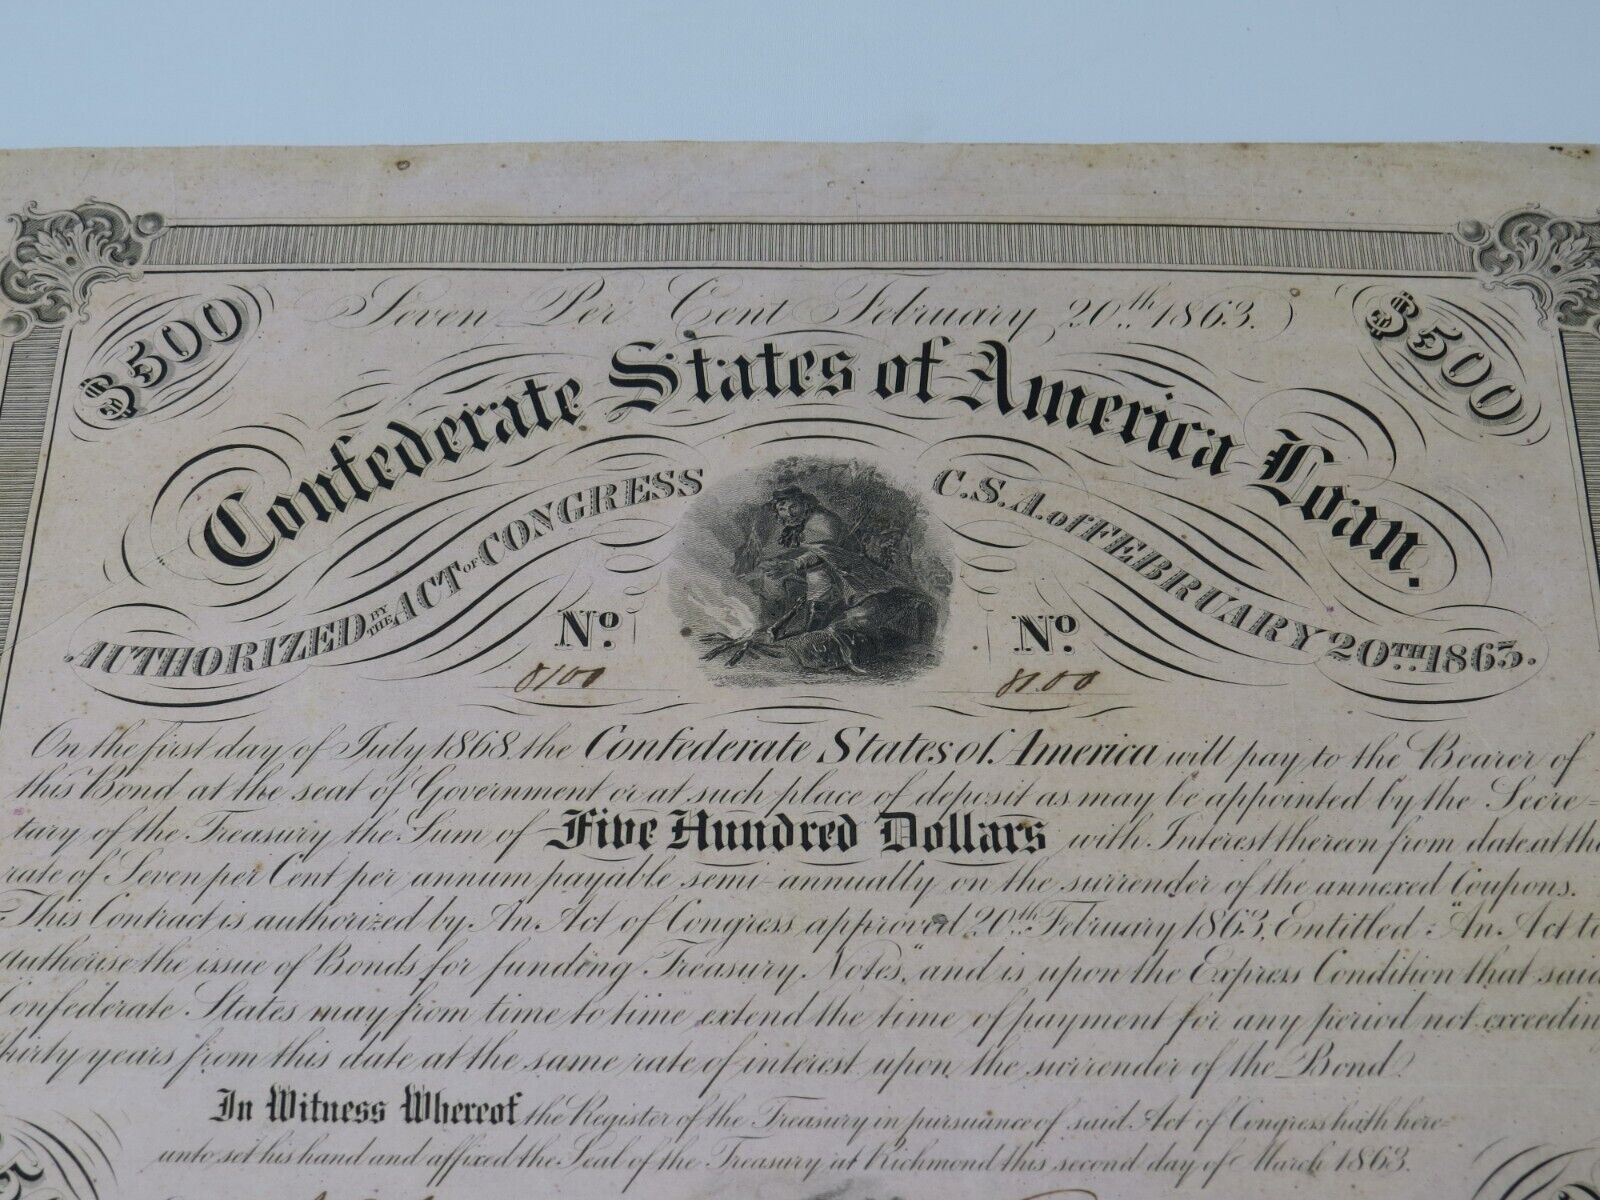 Seven Per Cent February 20th 1863.
$500
$500
Confederate States of America Loan.
AUTHORIZED BY THE ACT OF CONGRESS C.S.A. of FEBRUARY 20TH 1863.
No. 8100
No. 8100
On the first day of July 1868, the Confederate States of America will pay to the Bearer of
this Bond at the seat of Government or at such place of deposit as may be appointed by the Secre=
tary of the Treasury the Sum of Five Hundred Dollars with Interest thereon from date at the
rate of Seven per Cent per annum payable semi-annually on the surrender of the annexed Coupons.
This Contract is authorized by An Act of Congress approved 20th February 1863, Entitled: "An Act to
authorise the issue of Bonds for funding Treasury Notes", and is upon the Express Condition that said
Confederate States may from time to time extend the time of payment for any period not exceeding
thirty years from this date at the same rate of interest upon the surrender of the Bond.
In Witness Whereof the Register of the Treasury in pursuance of said Act of Congress hath here=
unto set his hand and affixed the Seal of the Treasury at Richmond this second day of March 1863.